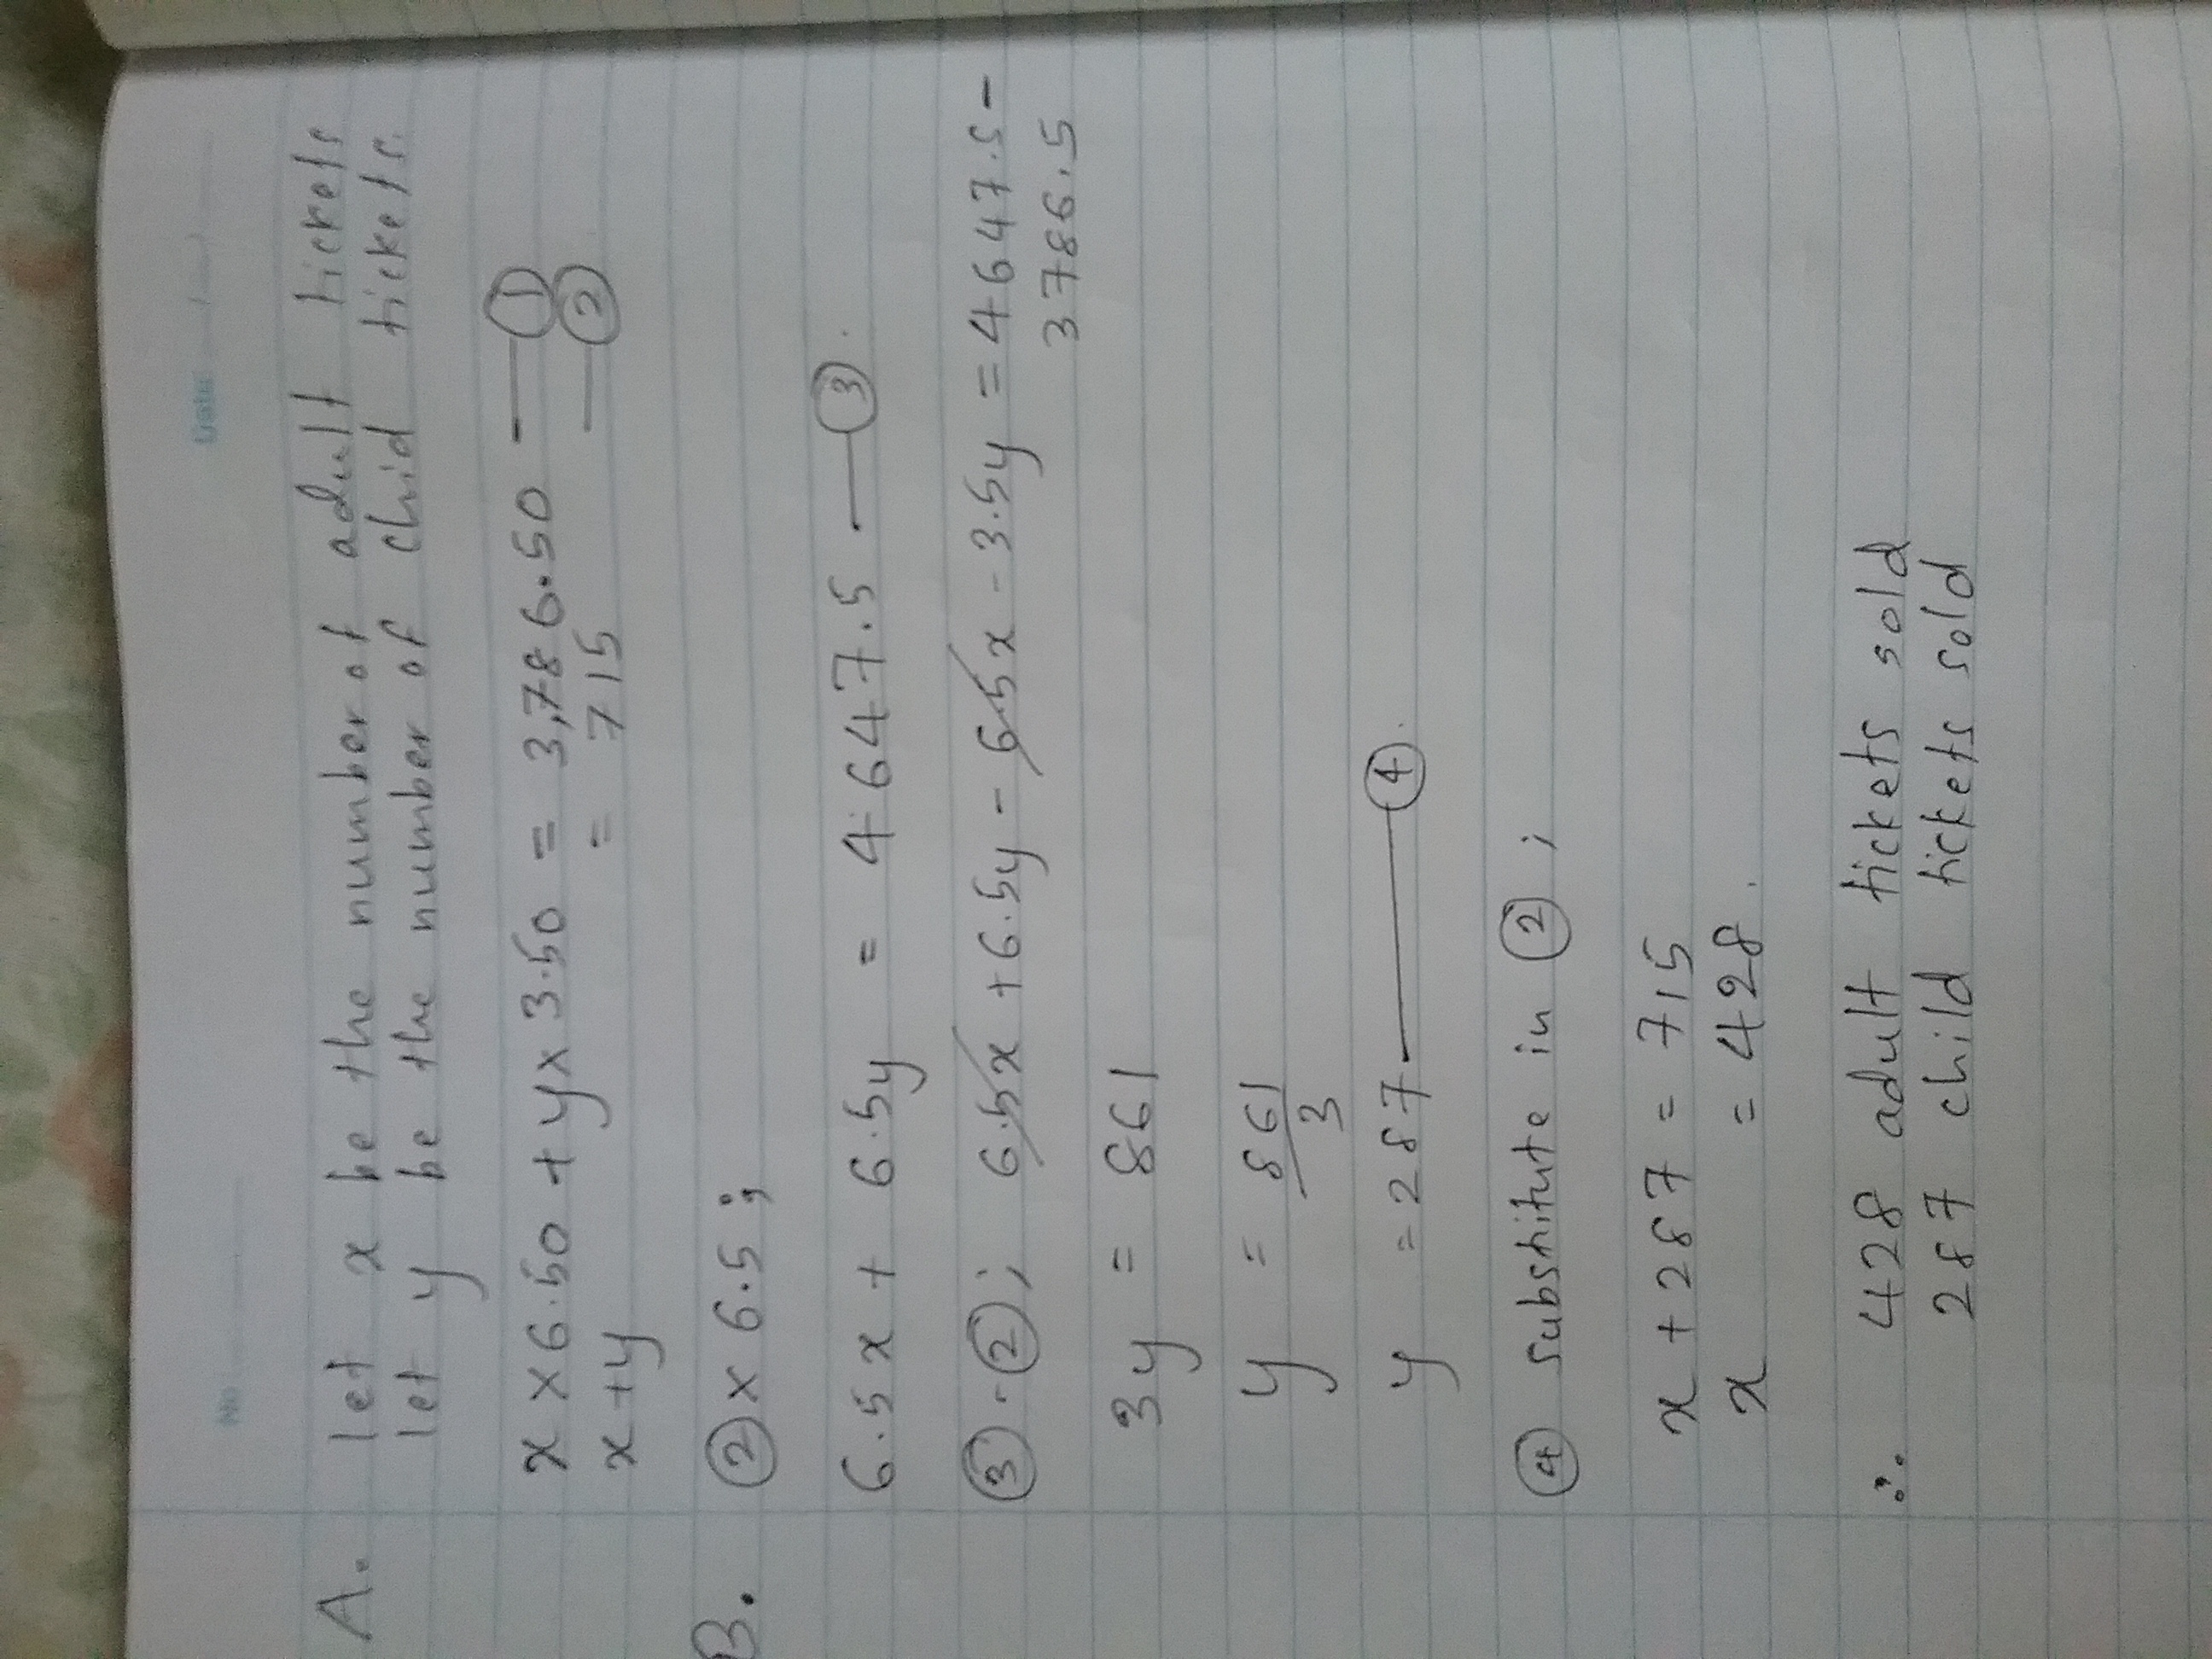 No
Date
A. let x be the number of adult tickets
let y be the number of child tickets.
x × 6.50 + y × 3.50 = 3,786.50 — ①
x + y = 715 — ②
B. ② × 6.5 ;
6.5x + 6.5y = 4647.5 — ③.
③ - ② ; 6.5x + 6.5y - 6.5x - 3.5y = 4647.5 -
3786.5
3y = 861
y = 861
3
y = 287 — ④.
④ substitute in ② ;
x + 287 = 715
x = 428.
∴ 428 adult tickets sold
287 child tickets sold